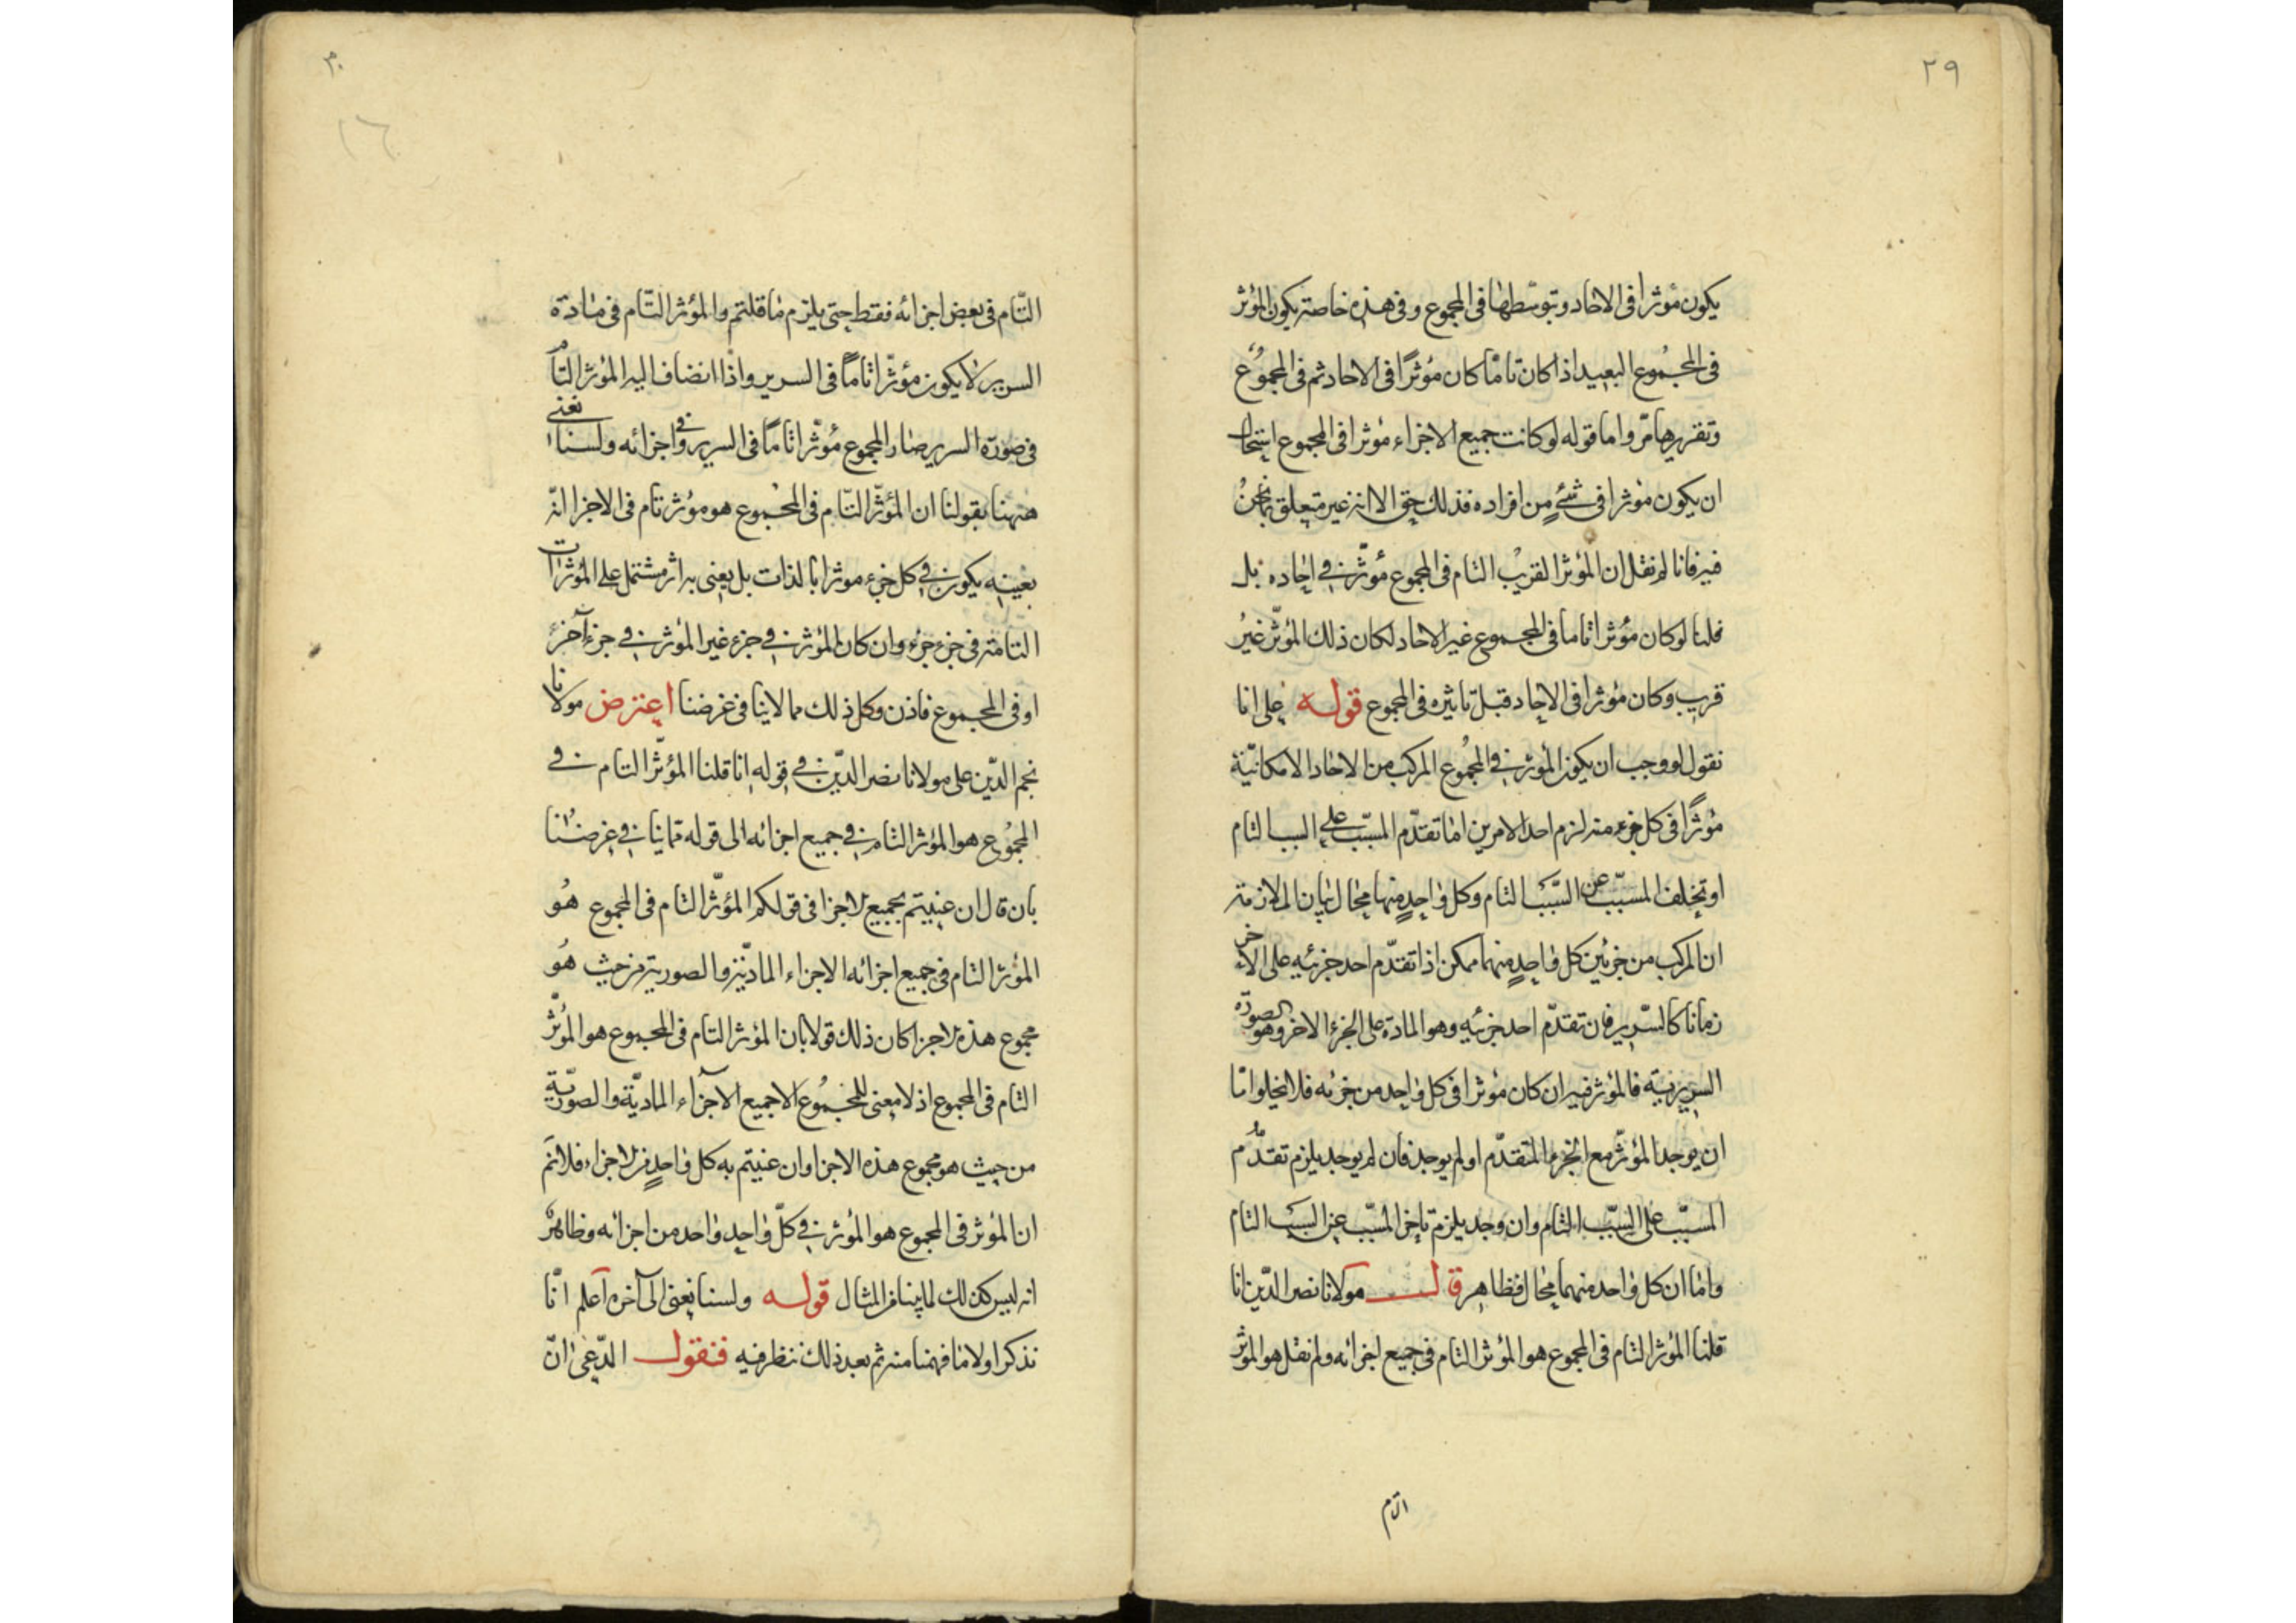 ٢٩
يكون مؤثرا فى الاحاد وبتوسّطها فى المجموع وفى هذه خاصته يكون المؤثر
فى المجموع البعيد اذا كان تامّا كان مؤثرًا فى الاحاد ثم فى المجموع
وتقريرها مرّ واما قوله لو كانت جميع الاجزاء مؤثرا فى المجموع استحال
ان يكون مؤثرا فى شئٍ من افراده فذلك حق الا انه غير متعلق بما نحنُ
فيه فانا لم نقل ان المؤثر القريب التام فى المجموع مؤثّر فى احاده بل
قلنا لو كان مؤثرا تاما فى المجموع غير الاحاد لكان ذلك المؤثّر غيرُ
قريب وكان مؤثرا فى الاحاد قبل تاثيره فى المجموع قوله على انا
نقول لو وجب ان يكون المؤثر فى المجموع المركب من الاحاد الامكانيّة
مؤثرًا فى كل جزء منه لزم احد الامرين امّا تقدّم المسبّب على السبب التام
او تخلف المسبّب عن السّبب التام وكل واحدٍ منهما محال بيان الملازمة
ان المركب من جزئين كل واحدٍ منهما ممكن اذا تقدّم احد جزئيه على الاخر
زمانا كالسّرير فان تقدّم احد جزئيه وهو المادة على الجزء الاخر وهو الصورة
السريرية فالمؤثر فيه ان كان مؤثرا فى كل واحد من جزئه فلا يخلوا امّا
ان يوجد المؤثّر مع الجزء المتقدّم او لم يوجد فان لم يوجد يلزم تقدُّم
المسبّب على السّبب التام وان وجد يلزم تاخر المسّبب عن السبب التام
واما ان كل واحد منهما محال فظاهر قال مولانا نصر الدّين انا
قلنا المؤثر التام فى المجموع هو المؤثر التام فى جميع اجزائه ولم نقل هو المؤثر
التام
٣٠
١٦
التّام فى بعض اجزائه فقط حتى يلزم ما قلتم والمؤثر التّام فى مادة
السرير لا يكون مؤثّرا تامًا فى السرير واذا انضاف اليه المؤثر التام
فى صورة السرير صار المجموع مؤثّرا تامًا فى السرير وفى اجزائه ولسنا نعنى
ههنا بقولنا ان المؤثّر التّام فى المجموع هو مؤثر تام فى الاجزا انّه
بعينه يكون فى كل جزء مؤثرا بالذات بل يعنى به انه مشتمل على المؤثرات
التامة فى جزء جزء وان كان المؤثر فى جزء غير المؤثر فى جزء آخر
او فى المجموع فاذن وكل ذلك مما لا ينافى غرضنا اعترض مولانا
نجم الدّين على مولانا نصر الدّين فى قوله انا قلنا المؤثّر التام فى
المجموع هو المؤثر التام فى جميع اجزائه الى قوله مما ينافى غرضنا
بان قال ان عنيتم بجميع الاجزا فى قولكم المؤثّر التام فى المجموع هُو
المؤثر التام فى جميع اجزائه الاجزاء الماديّة والصورية من حيث هُو
مجموع هذه الاجزا كان ذلك قولا بان المؤثر التام فى المجموع هو المؤثّر
التام فى المجموع اذ لا معنى للمجموع الا جميع الاجزاء الماديّة والصوريّة
من حيث هو مجموع هذه الاجزا وان عنيتم به كل واحدٍ من الاجزاء فلا نم
ان المؤثر فى المجموع هو المؤثر فى كلّ واحد واحد من اجزائه وظاهر
انه ليس كذلك لما بينا فى المثال قوله ولسنا نعنى الى آخره اعلم انّا
نذكر اولا ما فهمنا منه ثم بعد ذلك ننظر فيه فنقول المدّعى انّ